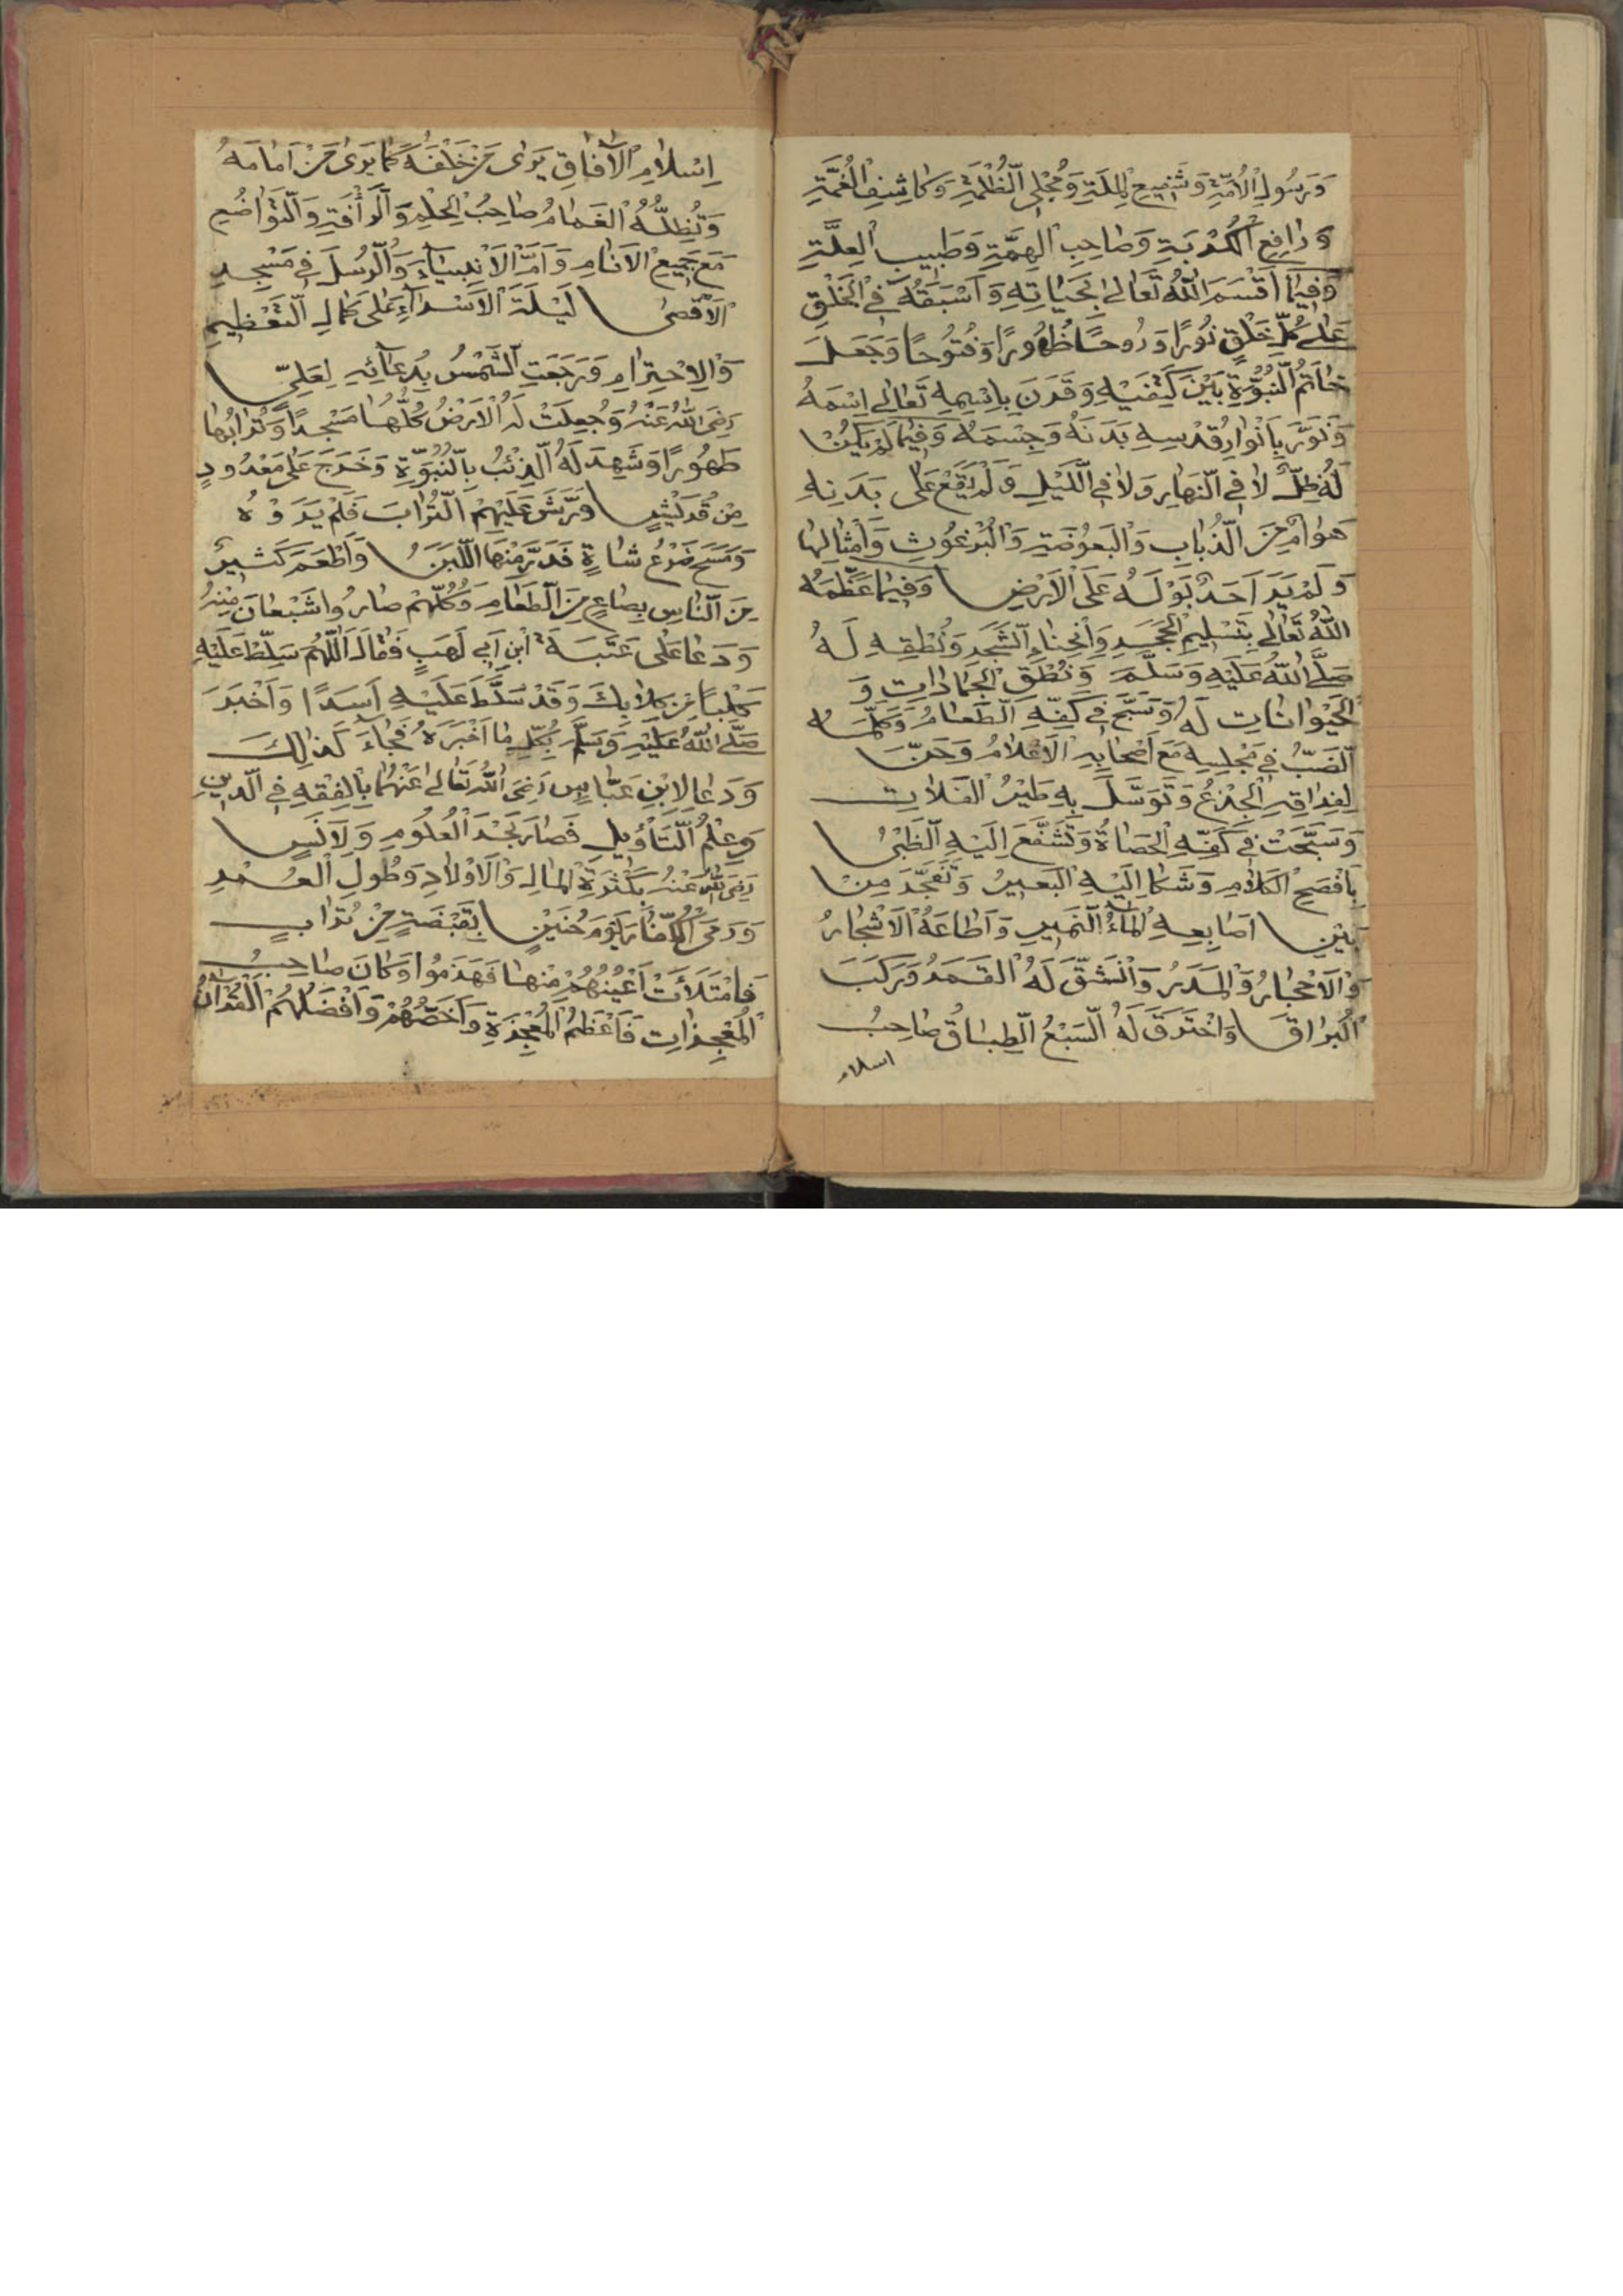 وَرَسُولِ الْاُمَّةِ وَشَفِيعِ الْمِلَّةِ وَمُجْلِي الظُّلْمَةِ وَكَاشِفِ الْغُمَّةِ
وَرَافِعِ الْكُرْبَةِ وَصَاحِبِ الْهِمَّةِ وَطَبِيبِ الْعِلَّةِ
وَفِيمَا اَقْسَمَ اللّٰهُ تَعَالٰى بِحَيَاتِهِ وَاَسْبَقَهُ فِي الْخَلْقِ
عَلٰى كُلِّ خَلْقٍ نُورًا وَرُوحًا ظُهُورًا وَفُتُوحًا وَجَعَلَ
خَاتَمُ النُّبُوَّةِ بَيْنَ كَتِفَيْهِ وَقَرَنَ بِاسْمِهِ تَعَالٰى اِسْمَهُ
وَنَوَّرَ بِاَنْوَارِ قُدْسِهِ بَدَنَهُ وَجِسْمَهُ وَفِيمَا لَمْ يَكُنْ
لَهُ ظِلٌّ لَا فِي النَّهَارِ وَلَا فِي اللَّيْلِ وَلَمْ يَقَعْ عَلٰى بَدَنِهِ
هَوَامٌ مِنَ الذُّبَابِ وَالْبَعُوضَةِ وَالْبُرْغُوثِ وَاَمْثَالِهَا
وَلَمْ يَرَ اَحَدٌ بَوْلَهُ عَلَى الْاَرْضِ وَفِيمَا عَظَّمَهُ
اللّٰهُ تَعَالٰى بِتَسْلِيمِ الْحَجَرِ وَانْحِنَاءِ الشَّجَرِ وَنُطْقِهِ لَهُ
صَلَّى اللّٰهُ عَلَيْهِ وَسَلَّمَ وَنُطْقِ الْجَمَادَاتِ وَ
الْحَيْوَانَاتِ لَهُ وَسَبَّحَ فِي كَفِّهِ الطَّعَامُ وَكَلَّمَهُ
الضَّبُّ فِي مَجْلِسِهِ مَعَ اَصْحَابِهِ الْاَعْلَامُ وَحَنَّ
لِفِرَاقِهِ الْجِذْعُ وَتَوَسَّلَ بِهِ طَيْرُ الْفَلَاتِ
وَسَبَّحَتْ فِي كَفِّهِ الْحَصَاةُ وَتَشَفَّعَ اِلَيْهِ الظَّبْيُ
بِاَفْصَحِ الْكَلَامِ وَشَكَا اِلَيْهِ الْبَعِيرُ وَتَفَجَّرَ مِنْ
بَيْنِ اَصَابِعِهِ الْمَاءُ النَّمِيرِ وَاَطَاعَهُ الْاَشْجَارُ
وَالْاَحْجَارُ وَالْمَدَرُ وَانْشَقَّ لَهُ الْقَمَرُ وَرَكَبَ
الْبُرَاقَ وَاخْتَرَقَ لَهُ السَّبْعُ الطِّبَاقُ صَاحِبُ
اسلام
اِسْلَامِ الْاٰفَاقِ يَرٰى مَنْ خَلْفَهُ كَمَا يَرٰى مَنْ اَمَامَهُ
وَتُظِلُّهُ الْغَمَامُ صَاحِبُ الْحِلْمِ وَالرَّأْفَةِ وَالتَّوَاضُعِ
مَعَ جَمِيعِ الْاَنَامِ وَاَمَّ الْاَنْبِيَاءَ وَالرُّسُلَ فِي مَسْجِدِ
الْاَقْصٰى لَيْلَةَ الْاَسْرَاءِ عَلٰى كَمَالِ التَّعْظِيمِ
وَالْاِحْتِرَامِ وَرَجَعَتِ الشَّمْسُ بِدُعَائِهِ لِعَلِيٍّ
رَضِيَ اللّٰهُ عَنْهُ وَجُعِلَتْ لَهُ الْاَرْضُ كُلُّهَا مَسْجِدًا وَتُرَابُهَا
طَهُورًا وَشَهِدَ لَهُ الذِّئْبُ بِالنُّبُوَّةِ وَخَرَجَ عَلٰى مَعْدُودٍ
مِنْ قُرَيْشٍ وَرَشَّ عَلَيْهِمُ التُّرَابَ فَلَمْ يَرَوْهُ
وَمَسَحَ ضَرْعُ شَاةٍ فَدَرَّ مِنْهَا اللَّبَنُ وَاَطْعَمَ كَثِيرٌ
مِنَ النَّاسِ بِصَاعٍ مِنَ الطَّعَامِ وَكُلُّهُمْ صَارُوا شَبْعَانَ مِنْهُ
وَدَعَا عَلٰى عَتَبَةَ ابْنِ اَبِي لَهَبٍ فَقَالَ اَللّٰهُمَّ سَلِّطْ عَلَيْهِ
كَلْبًا مِنْ كِلَابِكَ وَقَدْ سَلَّطَ عَلَيْهِ اَسَدًا وَاَخْبَرَ
صَلَّى اللّٰهُ عَلَيْهِ وَسَلَّمَ بِكُلِّ مَا اَخْبَرَهُ فَجَاءَ كَذَالِكَ
وَدَعَا لِابْنِ عَبَّاسٍ رَضِيَ اللّٰهُ تَعَالٰى عَنْهُمَا بِالْفِقْهِ فِي الدِّينِ
وَعِلْمُ التَّأْوِيلِ فَصَارَ بَحْرَ الْعُلُومِ وَلِاَنَسٍ
رَضِيَ اللّٰهُ عَنْهُ بِكَثْرَةِ الْمَالِ وَالْاَوْلَادِ وَطُولِ الْعُمْرِ
وَرَمَى الْكُفَّارَ يَوْمَ حُنَيْنٍ بِقَبْضَةٍ مِنْ تُرَابٍ
فَامْتَلَأَتْ اَعْيُنُهُمْ مِنْهَا فَهَزَمُوا وَكَانَ صَاحِبُ
الْمُعْجِزَاتِ فَاَعْظَمُ الْمُعْجِزَةِ وَاَخَصُّهُمْ وَاَفْضَلُهُمُ الْقُرْاٰنُ